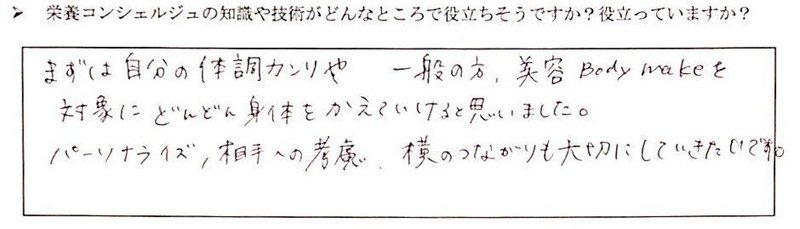 ➢ 栄養コンシェルジュの知識や技術がどんなところで役立ちそうですか？役立っていますか？
まずは自分の体調カンリや 一般の方、美容 Body makeを
対象に どんどん身体を かえていけると思いました。
パーソナライズ，相手への考慮、横のつながりも大切にしていきたいです。